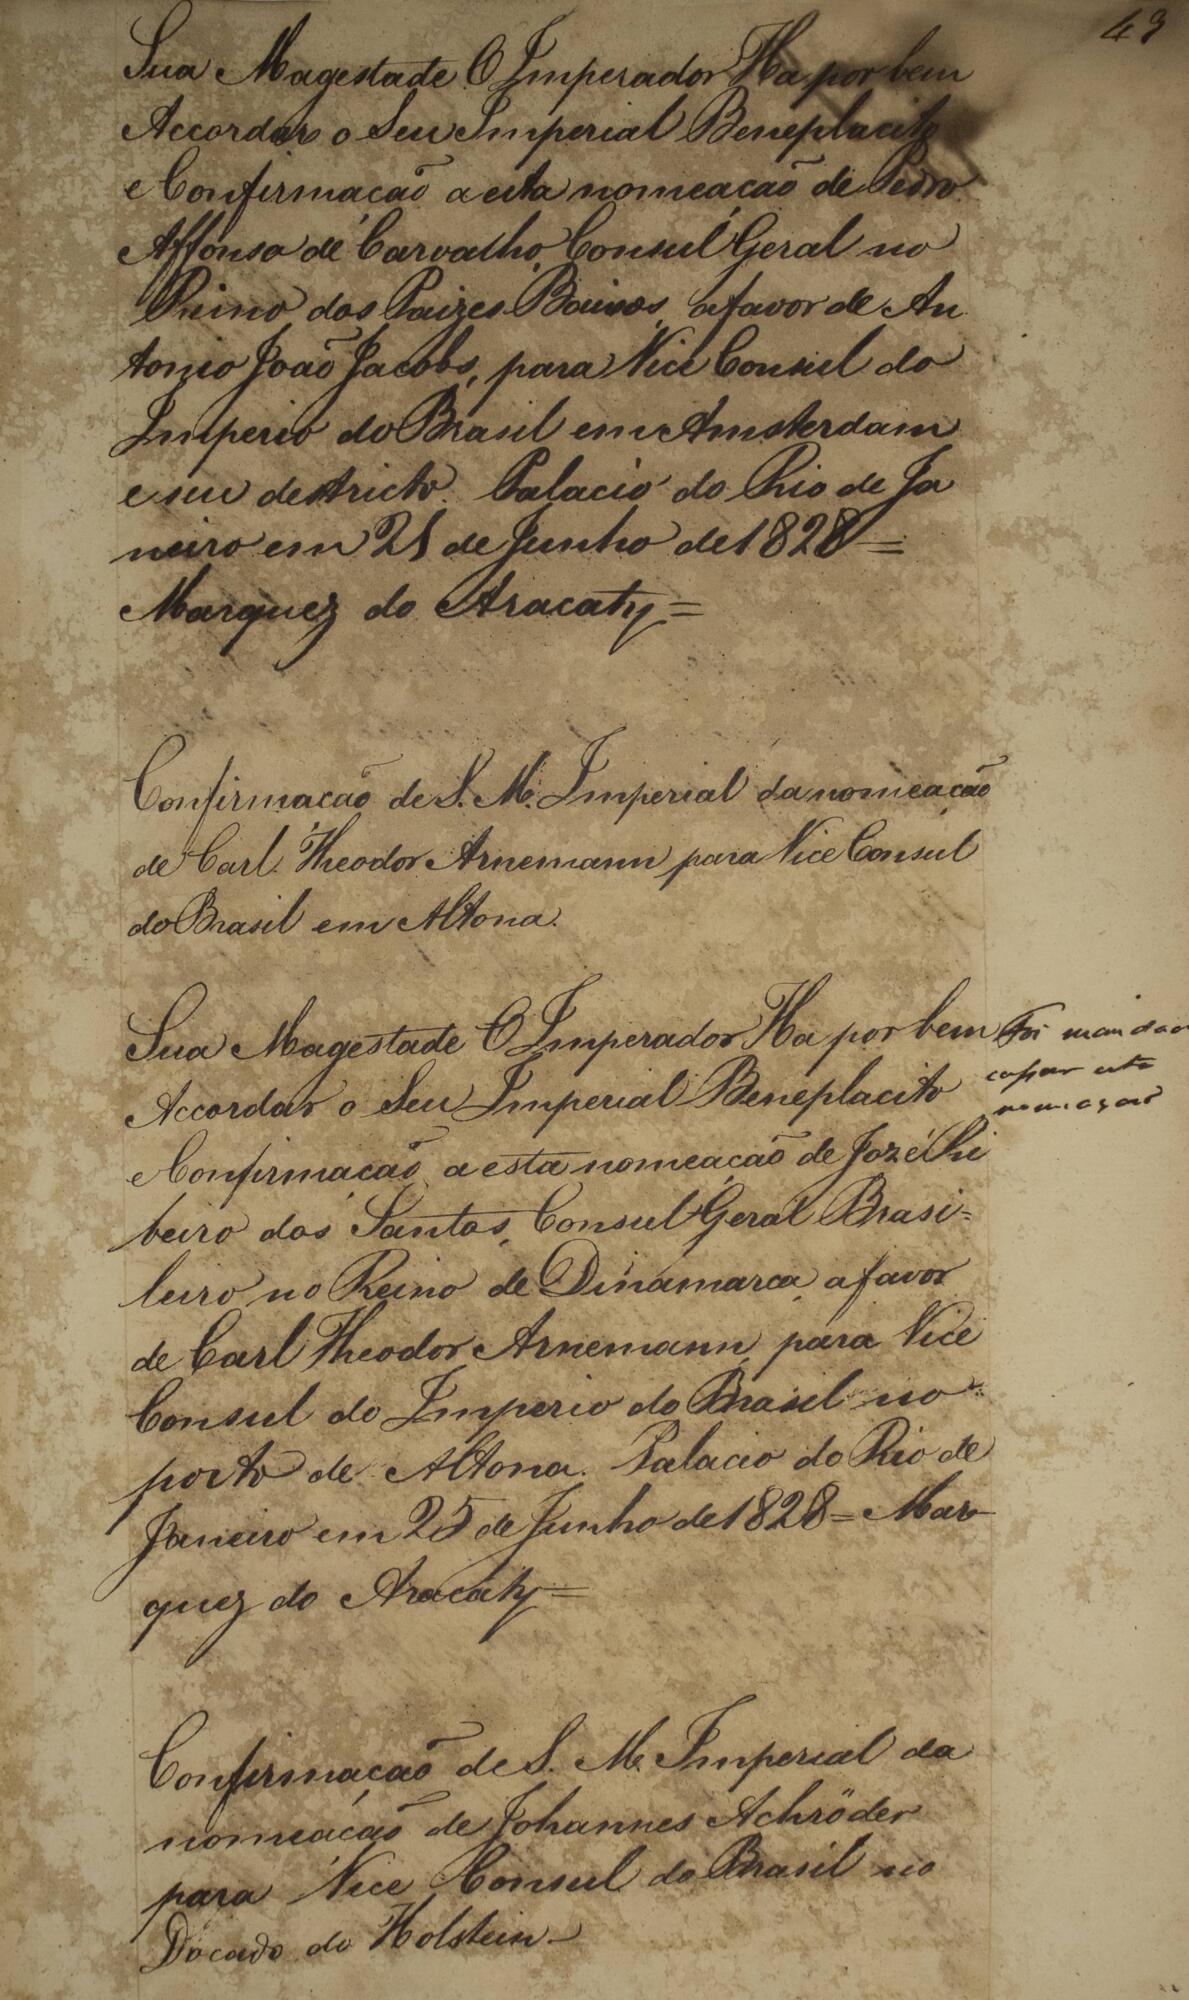 43
Sua Magestade O Imperador Ha por bem
Accordar o Seu Imperial Beneplacito
e Confirmação a esta nomeação de Pedro
Affonso de Carvalho, Consul Geral no
Reino dos Paizes Baixos, a favor de An
tonio João Jacobs, para Vice Consul do
Imperio do Brasil em Amsterdam
e seu destricto. Palacio do Rio de Ja
neiro em 21 de Junho de 1828 =
Marquez do Aracaty =
Confirmação de S. M. Imperial da nomeação
de Carl Theodor Arnemann para Vice Consul
do Brasil em Altona.
Sua Magestade O Imperador Ha por bem
Accordar o Seu Imperial Beneplacito
e Confirmação a esta nomeação de Jozé Ri
beiro dos Santos, Consul Geral Brasi=
leiro no Reino de Dinamarca, a favor
de Carl Theodor Arnemann, para Vice
Consul do Imperio do Brasil no
porto de Altona. Palacio do Rio de
Janeiro em 25 de Junho de 1828 = Mar
quez do Aracaty =
Foi
esta
nomeação
Confirmação de S. M. Imperial da
nomeação de Johannes Achröder
para Vice Consul do Brasil no
Docado do Holstein.